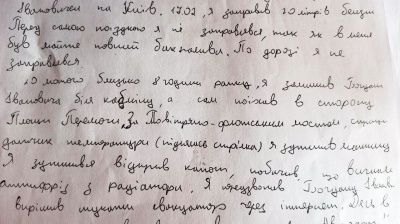 Івановичем на Київ. 17.02, я заправив 20 літрів бензину
Перед самою поїздкою я не заправлявся, так як в мене
був майже повний бак палива. По дорозі я не
заправлявся
О многого близько 8 години ранку, я залишив Богдана
Івановича біля кабінету, а сам поїхав в сторону
Площі Перемоги, За Повітряно-флотським мостом, спрацював
датчик температури (піднялась стрілка) я зупинив машину
Я зупинився відкрив капот, побачив, що витікає
антифріз з радіатора, Я передзвонив Богдану Івановичу
вирішив шукати евакуатор через інтернет. Десь в